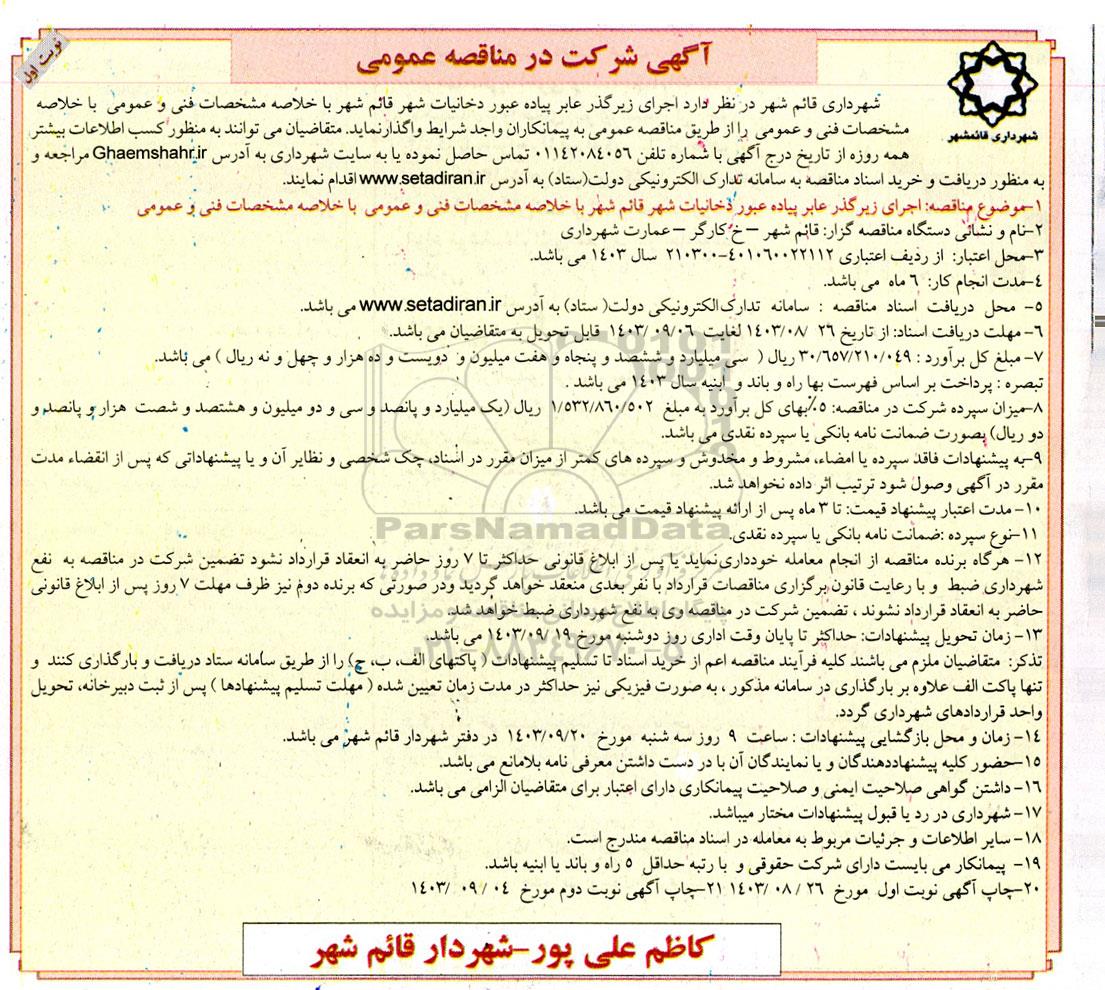 آگهی شرکت در مناقصه عمومی
نوبت اول
شهرداری قائمشهر
شهرداری قائم شهر در نظر دارد اجرای زیرگذر عابر پیاده عبور دخانیات شهر قائم شهر با خلاصه مشخصات فنی و عمومی با خلاصه
مشخصات فنی و عمومی را از طریق مناقصه عمومی به پیمانکاران واجد شرایط واگذارنماید. متقاضیان می توانند به منظور کسب اطلاعات بیشتر
همه روزه از تاریخ درج آگهی با شماره تلفن ۰۱۱۴۲۰۸۴۰۵۶ تماس حاصل نموده یا به سایت شهرداری به آدرس Ghaemshahr.ir مراجعه و
به منظور دریافت و خرید اسناد مناقصه به سامانه تدارک الکترونیکی دولت(ستاد) به آدرس www.setadiran.ir اقدام نمایند.
۱-موضوع مناقصه: اجرای زیرگذر عابر پیاده عبور دخانیات شهر قائم شهر با خلاصه مشخصات فنی و عمومی با خلاصه مشخصات فنی و عمومی
۲-نام و نشانی دستگاه مناقصه گزار: قائم شهر –خ کارگر –عمارت شهرداری
۳-محل اعتبار: از ردیف اعتباری ۴۰۱۰۶۰۰۲۲۱۱۲-۲۱۰۳۰۰ سال ۱۴۰۳ می باشد.
۴-مدت انجام کار: ۶ ماه می باشد.
۵- محل دریافت اسناد مناقصه : سامانه تدارک الکترونیکی دولت( ستاد) به آدرس www.setadiran.ir می باشد.
۶- مهلت دریافت اسناد: از تاریخ ۲۶ /۱۴۰۳/۰۸ لغایت ۰۹/۰۶ /۱۴۰۳ قابل تحویل به متقاضیان می باشد.
۷- مبلغ کل برآورد : ۳۰/۶۵۷/۲۱۰/۰۴۹ ریال ( سی میلیارد و ششصد و پنجاه و هفت میلیون و دویست و ده هزار و چهل و نه ریال ) می باشد.
تبصره : پرداخت بر اساس فهرست بها راه و باند و ابنیه سال ۱۴۰۳ می باشد .
۸-میزان سپرده شرکت در مناقصه: ۵٪بهای کل برآورد به مبلغ ۱/۵۳۲/۸۶۰/۵۰۲ ریال (یک میلیارد و پانصد و سی و دو میلیون و هشتصد و شصت هزار و پانصد و
دو ریال) بصورت ضمانت نامه بانکی یا سپرده نقدی می باشد.
۹-به پیشنهادات فاقد سپرده یا امضاء، مشروط و مخدوش و سپرده های کمتر از میزان مقرر در اسناد، چک شخصی و نظایر آن و یا پیشنهاداتی که پس از انقضاء مدت
مقرر در آگهی وصول شود ترتیب اثر داده نخواهد شد.
۱۰- مدت اعتبار پیشنهاد قیمت: تا ۳ ماه پس از ارائه پیشنهاد قیمت می باشد.
ParsNamadData
۱۱-نوع سپرده :ضمانت نامه بانکی یا سپرده نقدی.
۱۲- هرگاه برنده مناقصه از انجام معامله خودداری نماید یا پس از ابلاغ قانونی حداکثر تا ۷ روز حاضر به انعقاد قرارداد نشود تضمین شرکت در مناقصه به نفع
شهرداری ضبط و با رعایت قانون برگزاری مناقصات قرارداد با نفر بعدی منعقد خواهد گردید ودر صورتی که برنده دوم نیز ظرف مهلت ۷ روز پس از ابلاغ قانونی
حاضر به انعقاد قرارداد نشوند ، تضمین شرکت در مناقصه وی به نفع شهرداری ضبط خواهد شد.
۱۳- زمان تحویل پیشنهادات: حداکثر تا پایان وقت اداری روز دوشنبه مورخ ۱۹ /۱۴۰۳/۰۹ می باشد.
تذکر: متقاضیان ملزم می باشند کلیه فرآیند مناقصه اعم از خرید اسناد تا تسلیم پیشنهادات ( پاکتهای الف، ب، ج) را از طریق سامانه ستاد دریافت و بارگذاری کنند و
تنها پاکت الف علاوه بر بارگذاری در سامانه مذکور ، به صورت فیزیکی نیز حداکثر در مدت زمان تعیین شده ( مهلت تسلیم پیشنهادها ) پس از ثبت دبیرخانه، تحویل
واحد قراردادهای شهرداری گردد.
۱۴- زمان و محل بازگشایی پیشنهادات : ساعت ۹ روز سه شنبه مورخ ۱۴۰۳/۰۹/۲۰ در دفتر شهردار قائم شهر می باشد.
۱۵-حضور کلیه پیشنهاددهندگان و یا نمایندگان آن با در دست داشتن معرفی نامه بلامانع می باشد.
۱۶- داشتن گواهی صلاحیت ایمنی و صلاحیت پیمانکاری دارای اعتبار برای متقاضیان الزامی می باشد.
۱۷- شهرداری در رد یا قبول پیشنهادات مختار میباشد.
۱۸- سایر اطلاعات و جرئیات مربوط به معامله در اسناد مناقصه مندرج است.
۱۹- پیمانکار می بایست دارای شرکت حقوقی و با رتبه حداقل ۵ راه و باند یا ابنیه باشد.
۲۰-چاپ آگهی نوبت اول مورخ ۲۶ / ۰۸ /۱۴۰۳ ۲۱-چاپ آگهی نوبت دوم مورخ ۰۴ / ۰۹ /۱۴۰۳
کاظم علی پور-شهردار قائم شهر